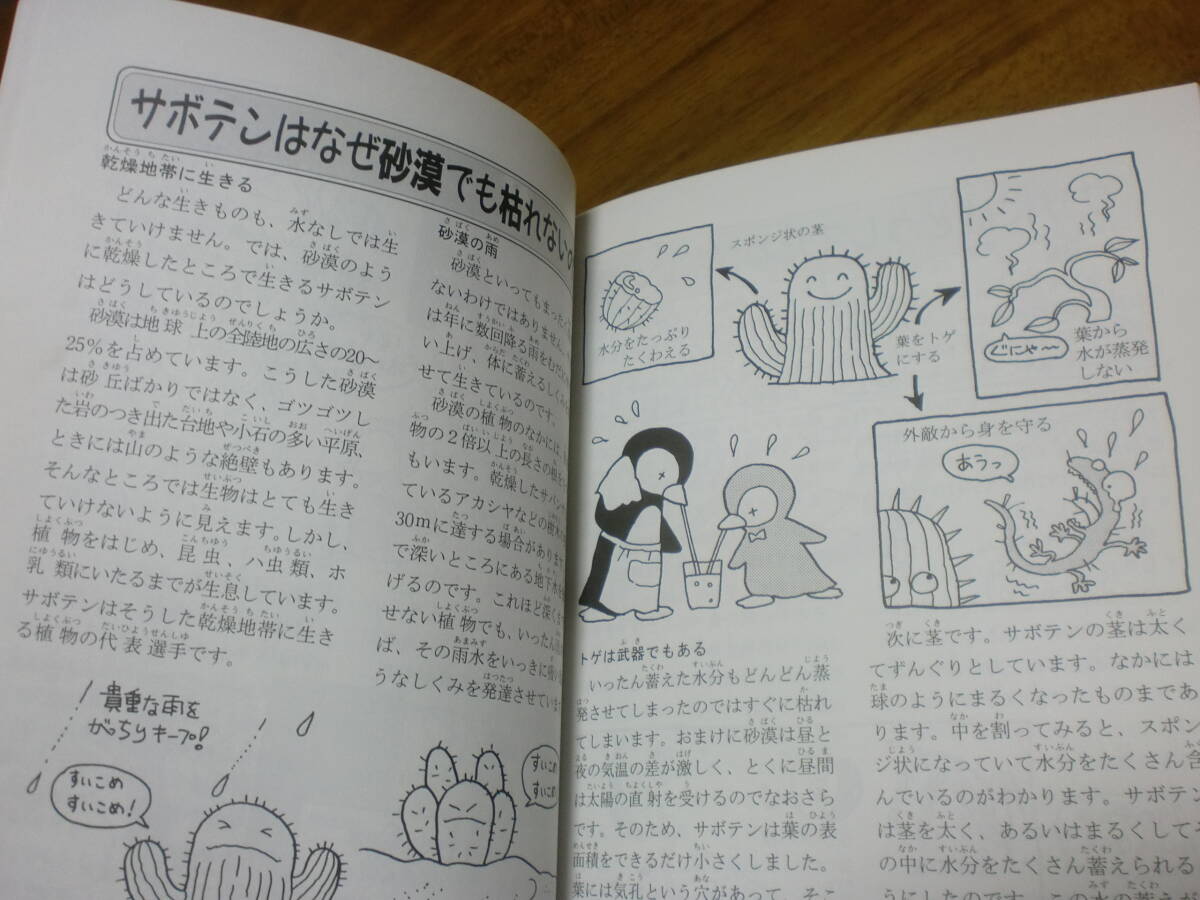 サボテンはなぜ砂漠でも枯れない
乾燥地帯に生きる
どんな生きものも、水なしでは生
きていけません。では、砂漠のよう
に乾燥したところで生きるサボテン
はどうしているのでしょうか。
砂漠は地球上の全陸地の広さの20〜
25%を占めています。こうした砂漠
は砂丘ばかりではなく、ゴツゴツし
た岩のつき出た台地や小石の多い平原、
ときには山のような絶壁もあります。
そんなところでは生物はとても生き
ていけないように見えます。しかし、
植物をはじめ、昆虫、ハ虫類、ホ
乳類にいたるまでが生息しています。
サボテンはそうした乾燥地帯に生き
る植物の代表選手です。
砂漠の雨
砂漠といってもまった
ないわけではありません。
は年に数回降る雨をむだ
い上げ、体に蓄えるしくみ
せて生きているのです。
砂漠の植物のなかには、
物の2倍以上の長さの根を
もいます。乾燥したサバン
ているアカシヤなどの樹木
30mに達する場合があります
で深いところにある地下水を
げるのです。これほど深く
せない植物でも、いったん
ば、その雨水をいっきに
うなしくみを発達させています
貴重な雨を
がっちりキープ!
すいこめ
すいこめ!
すいこめ
すいこめ
スポンジ状の茎
水分をたっぷり
たくわえる
葉をトゲ
にする
ぐにゃ〜
葉から
水が蒸発
しない
外敵から身を守る
あうっ
トゲは武器でもある
いったん蓄えた水分もどんどん蒸
発させてしまったのではすぐに枯れ
てしまいます。おまけに砂漠は昼と
夜の気温の差が激しく、とくに昼間
は太陽の直射を受けるのでなおさら
です。そのため、サボテンは葉の表
面積をできるだけ小さくしました。
葉には気孔という穴があって、そこ
次に茎です。サボテンの茎は太く
てずんぐりとしています。なかには
球のようにまるくなったものまであ
ります。中を割ってみると、スポン
ジ状になっていて水分をたくさん含
んでいるのがわかります。サボテン
は茎を太く、あるいはまるくして
の中に水分をたくさん蓄えられる
うにしたのです。この水の蓄えが